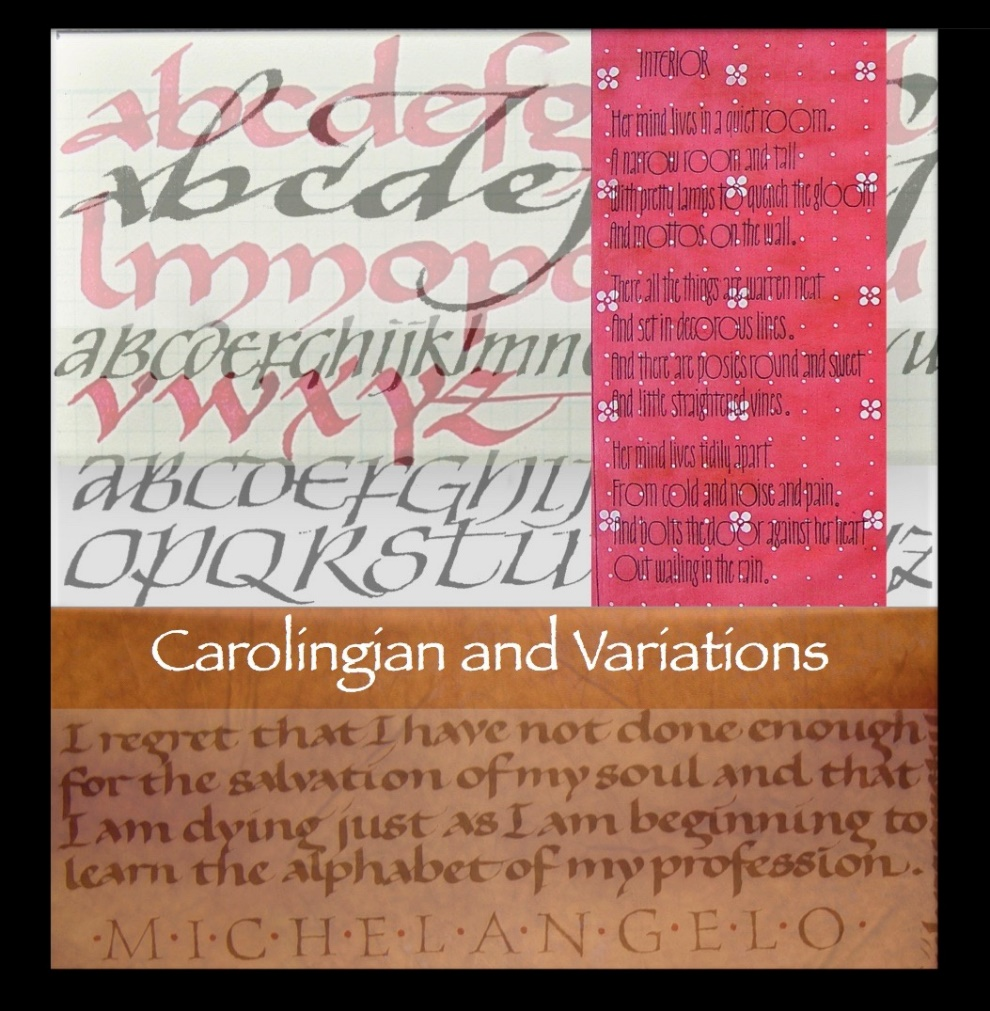 abcdefg
abcde
lmnop
aBcdefghijklmn
vwxyz
aBCDEFGhIJ
OPQRSTU
yz
INTERIOR
Her mind lives in a quiet room.
A narrow room and tall
With pretty lamps to quench the gloom
And mottos on the wall.
There all the things are warren neat
And set in decorous lines.
And there are posies round and sweet
And little straightened vines.
Her mind lives tidily apart
From cold and noise and pain.
And bolts the door against her heart
Out wailing in the rain.
Carolingian and Variations
I regret that I have not done enough
for the salvation of my soul and that
I am dying just as I am beginning to
learn the alphabet of my profession.
·M·I·C·H·E·L·A·N·G·E·L·O·